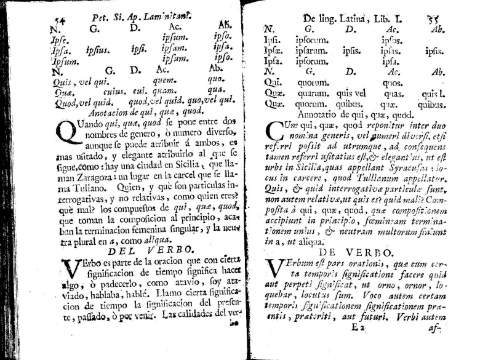 54 Pet. Si. Ap. Laminitani.
N. G. D. Ac. Ab.
Ipse. ipsum. ipso.
Ipsa. ipsius. ipsi. ipsam. ipsa.
Ipsum. ipsum. ipso.
N. G. D. Ac. Ab.
Quis, vel qui. quem. quo.
Quæ, cuius. cui. quam. qua.
Quod, vel quid. quod, vel quid. quo, vel qui.
Anotacion de qui, quæ, quod.
QUando qui, quæ, quod se pone entre dos
nombres de genero, ò numero diverso,
aunque se puede atribuir á ambos, es
mas usitado, y elegante atribuirlo al que se
sigue, como: hay una ciudad en Sicilia, que lla-
man Zaragoza: un lugar en la carcel que se lla-
ma Tuliano. Quien, y què son particulas in-
terrogativas, y no relativas, como quien eres?
què mal? los compuestos de qui, quæ, quod,
que toman la composicion al principio, aca-
ban la terminacion femenina singular, y la neu-
tra plural en a, como aliqua.
DEL VERBO.
VErbo es parte de la oracion que con cierta
significacion de tiempo significa hacer
algo, ò padecerlo, como atavio, soy ata-
viado, hablaba, hablé. Llamo cierta significa-
cion de tiempo la significacion del presen-
te, passado, ò por venir. Las calidades del ver-
bo
De ling. Latina, Lib. I. 55
N. G. D. Ac. Ab.
Ipsi. ipsorum. ipsos.
Ipsæ. ipsarum. ipsis. ipsas. ipsis.
Ipsa. ipsorum. ipsa.
N. G. D. Ac. Ab.
Qui. quorum. quos.
Quæ. quarum. quis vel quas. quis l.
Quæ. quorum. quibus. quæ. quibus.
Annotatio de qui, quæ, quod.
CUm qui, quæ, quod reponitur inter duo
nomina generis, vel numeri diversi, etsi
referri possit ad utrumque, ad consequens
tamen referri usitatius est, & elegantius, ut est
urbs in Sicilia, quas appellant Syracusas: lo-
cus in carcere, quod Tullianum appellatur.
Quis, & quid interrogativæ particulæ sunt,
non autem relativæ, ut quis es? quid mali? Com-
posita á qui, quæ, quod, quæ compositionem
accipiunt in principio, fœmininam termina-
tionem unius, & neutram multorum finiunt
in a, ut aliqua.
DE VERBO.
VErbum est pars orationis, quæ cum cer-
ta temporis significatione facere quid
aut perpeti significat, ut orno, ornor, lo-
quebar, locutus sum. Voco autem certam
temporis significationem significationem præs-
entis, præteriti, aut futuri. Verbi autem
E 2 af-